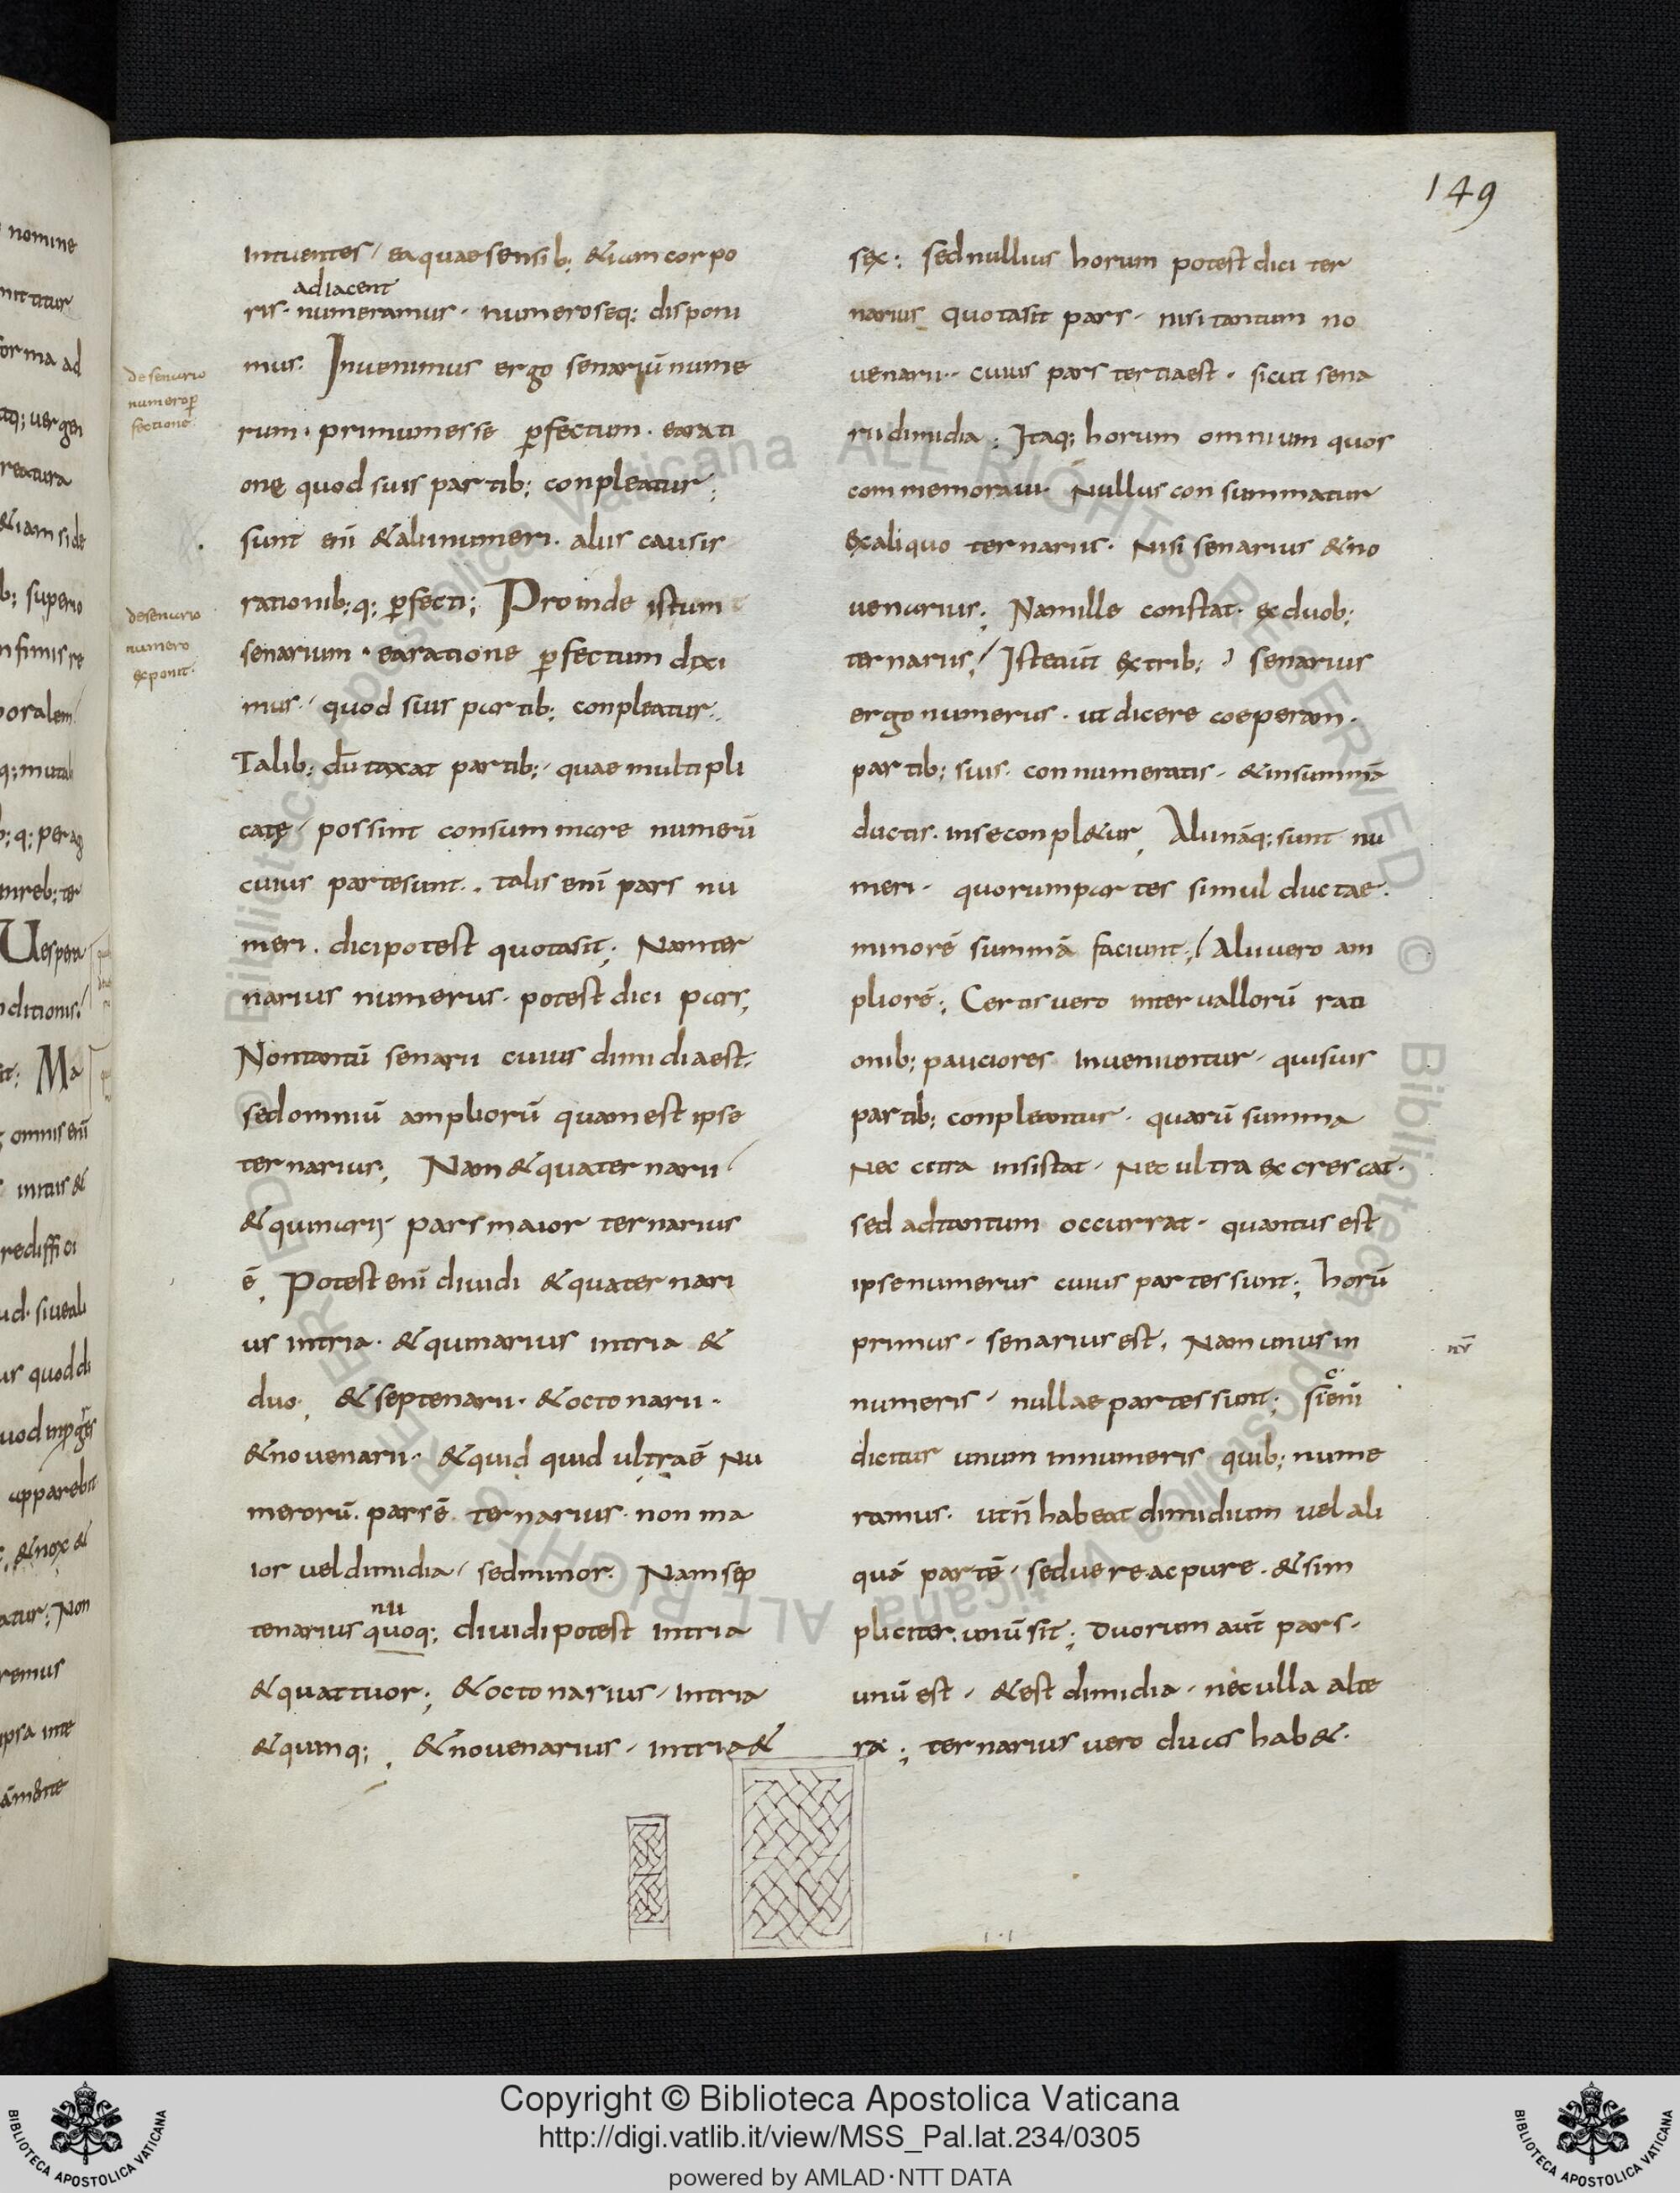 149
intuentes / ea quae sensib; &iam corpo
adiacent
ris · numeramus · numeroseq; disponi
mus: Invenimus ergo senariū nume
de senario
numero ꝑ
fectione
rum · primum esse ꝑfectum · ea rati
one quod suis partib; conpleatur;
sunt enī & alii numeri · aliis causis
rationib;q; ꝑfecti; Proinde istum
de senario
numero
exponit·
senarium · ea ratione ꝑfectum dixi
mus · quod suis partib; conpleatur;
Talib; dūtaxat partib; · quae multipli
catę / possint consummare numerū
cuius partes sunt · talis enī pars nu
meri · dici potest quota sit; Nam ter
narius numerus · potest dici pars,
Non tantū senarii cuius dimidia est·
sed omniū ampliorū quam est ipse
ternarius; Nam & quaternarii /
& quinarii pars maior ternarius
ē, Potest enī dividi & quaternari
us in tria · & quinarius in tria &
duo, & septenarii · & octonarii ·
& novenarii · & quid quid ultra ē nu
merorū · pars ē ternarius · non ma
ior vel dimidia / sed minor · Nam sep
nu
tenarius quoq; dividi potest in tria
& quattuor; & octonarius / in tria
& quinq; , & novenarius · in tria &
sex; sed nullius horum potest dici ter
narius quota sit pars · nisi tantum no
venarii · cuius pars tertia est · sicut sena
rii dimidia; Itaq; horum omnium quos
commemoravi · Nullus consummatur
ex aliquo ternarius · Nisi senarius & no
venarius; Nam ille constat · ex duob;
ternarius; / Iste aūt ex trib; senarius
ergo numerus · ut dicere coeperam ·
partib; suis · connumeratis · & in summā
ductis · in se conpl&ur, Alii nāq; sunt nu
meri · quorum partes simul ductae ·
minorē summā faciunt; / Alii vero am
pliorē; Certis vero intervallorū rati
onib; pauciores inveniuntur / qui suis
partib; conpleantur · quarū summa
Nec citra insistat · Nec ultra excrescat ·
sed ad tantum occurrat · quantus est
ipse numerus cuius partes sunt; horū
primus · senarius est, Nam unus in
numeris · nullae partes sunt; si enī
dicitur unum in numeris quib; nume
ramus · ut n̄ habeat dimidium vel ali
quā partē / sed vere ac pure · & sim
pliciter · unū sit; Duorum aūt pars ·
unū est · & est dimidia · nec ulla alte
ra; ternarius vero duas hab& ·
Copyright © Biblioteca Apostolica Vaticana
http://digi.vatlib.it/view/MSS_Pal.lat.234/0305
powered by AMLAD·NTT DATA
BIBLIOTECA APOSTOLICA VATICANA
BIBLIOTECA APOSTOLICA VATICANA